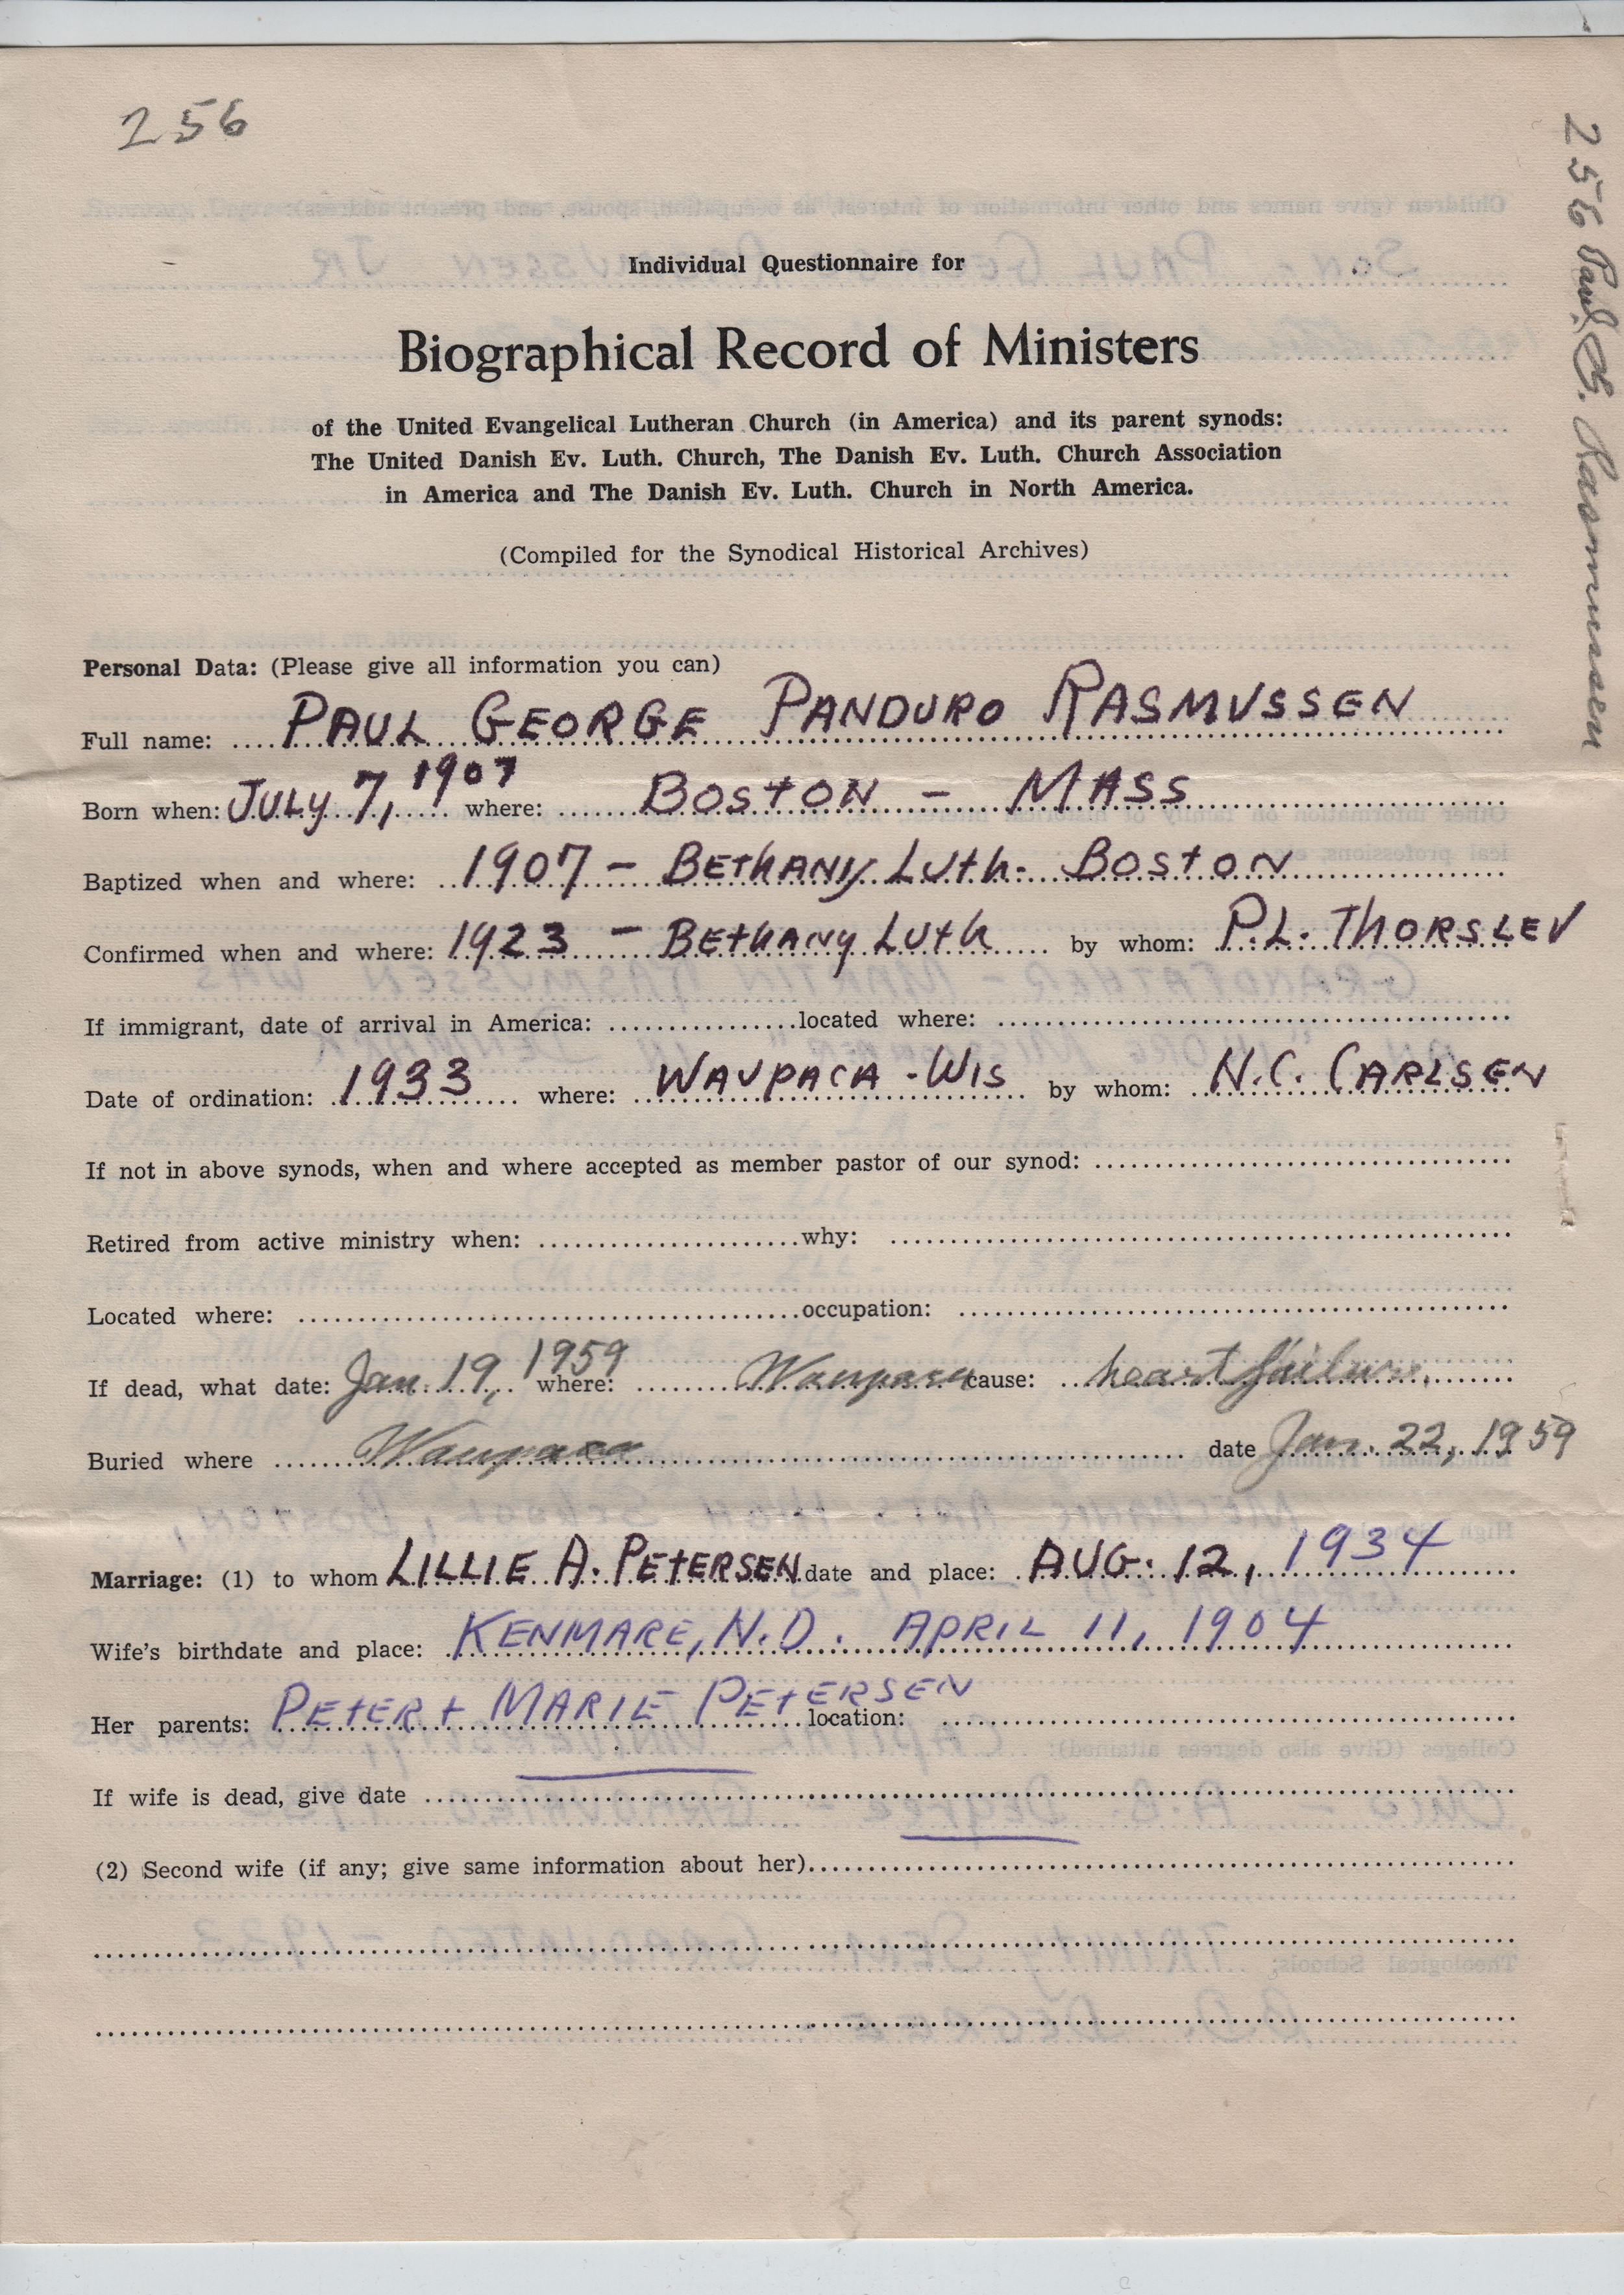 256
256 Paul G. Rasmussen
Individual Questionnaire for
Biographical Record of Ministers
of the United Evangelical Lutheran Church (in America) and its parent synods:
The United Danish Ev. Luth. Church, The Danish Ev. Luth. Church Association
in America and The Danish Ev. Luth. Church in North America.
(Compiled for the Synodical Historical Archives)
Personal Data: (Please give all information you can)
Full name: PAUL GEORGE PANDURO RASMUSSEN
Born when: JULY 7, 1907 where: BOSTON - MASS
Baptized when and where: 1907 - BETHANY LUTH. BOSTON
Confirmed when and where: 1923 - BETHANY LUTH by whom: P.L. THORSLEV
If immigrant, date of arrival in America: located where:
Date of ordination: 1933 where: WAUPACA - WIS by whom: N.C. CARLSEN
If not in above synods, when and where accepted as member pastor of our synod:
Retired from active ministry when: why:
Located where: occupation:
If dead, what date: Jan. 19, 1959 where: Waupaca cause: heart failure.
Buried where Waupaca date Jan. 22, 1959
Marriage: (1) to whom LILLIE A. PETERSEN date and place: AUG. 12, 1934
Wife's birthdate and place: KENMARE, N.D. APRIL 11, 1904
Her parents: PETER + MARIE PETERSEN location:
If wife is dead, give date
(2) Second wife (if any; give same information about her)